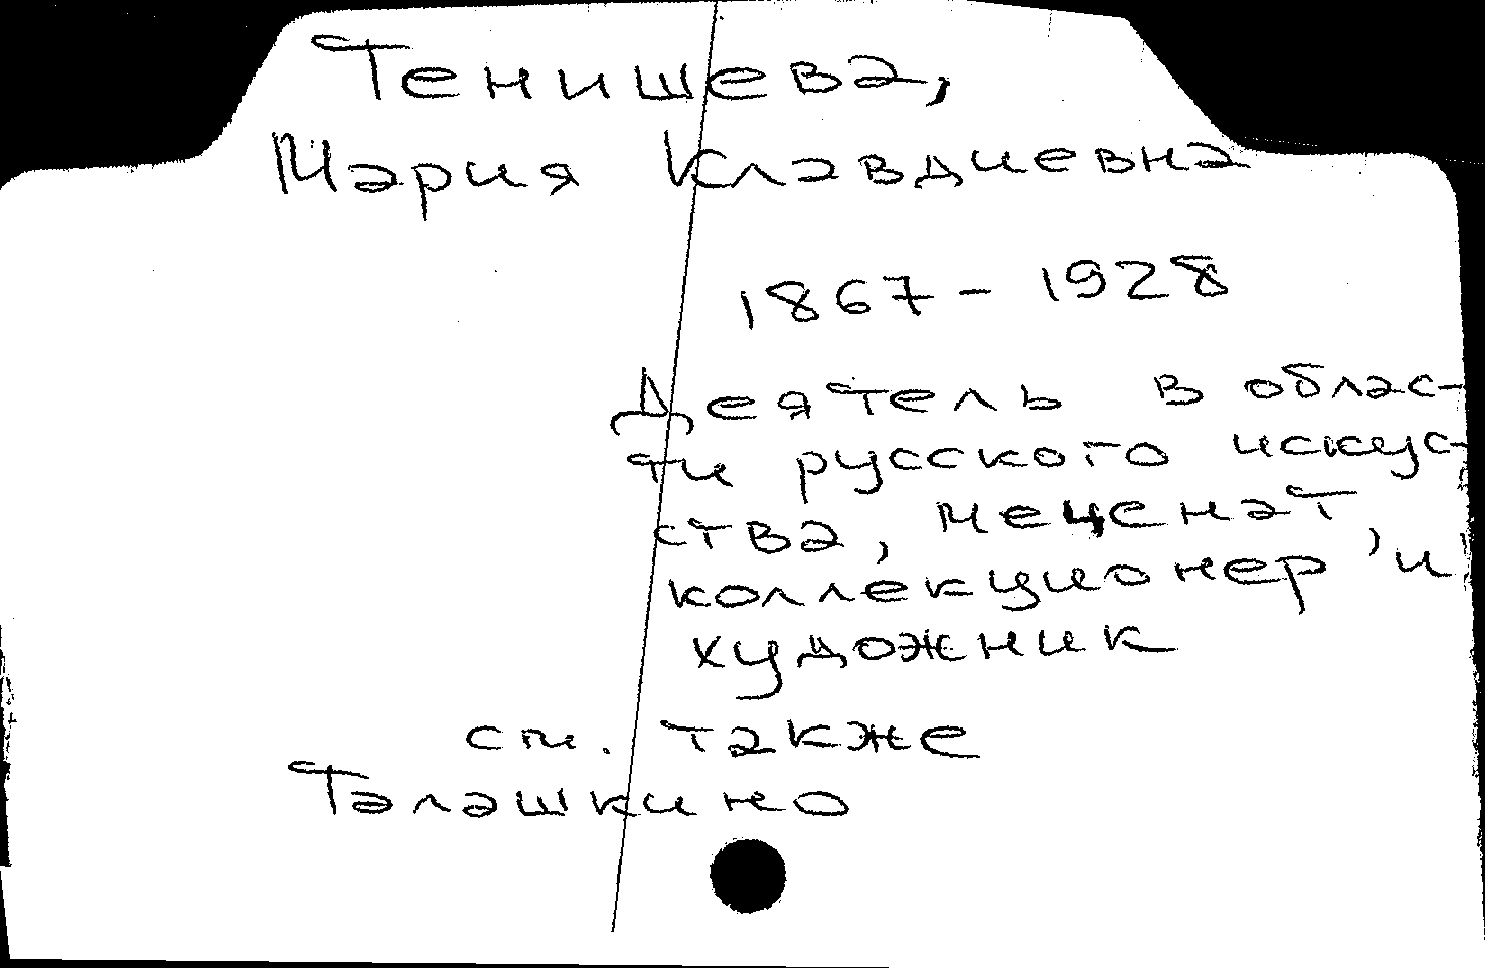 Тенишева,
Мария Клавдиевна
1867 - 1928
Деятель в облас-
ти русского искус-
ства, меценат,
коллекционер и
художник
см. также
Талашкино